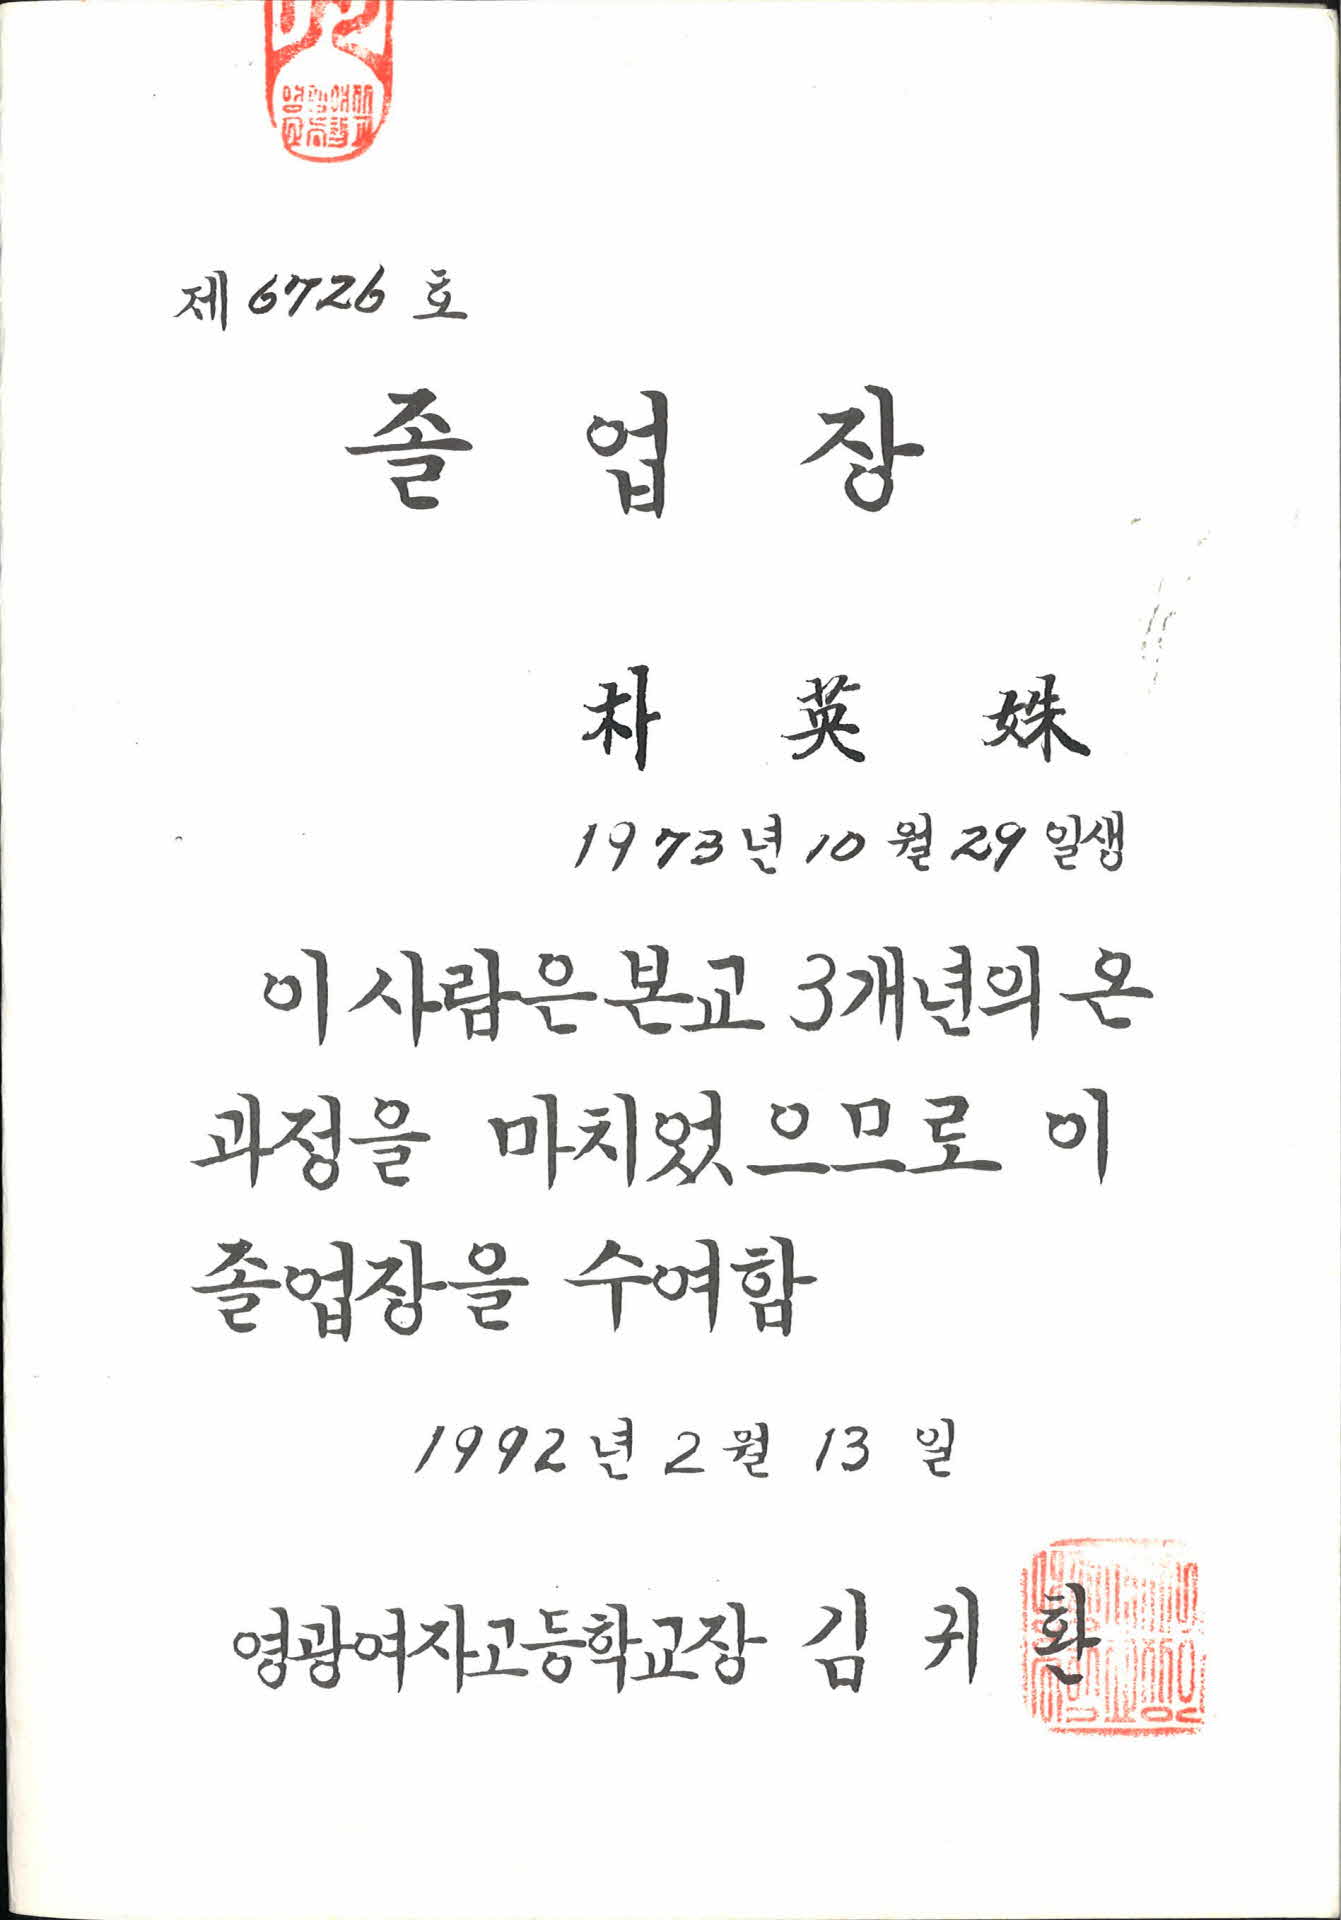 제 6726 호
졸 업 장
朴 英 姝
1973년 10월 29일생
이 사람은 본교 3개년의 온
과정을 마치었으므로 이
졸업장을 수여함
1992년 2월 13일
영광여자고등학교장 김귀환